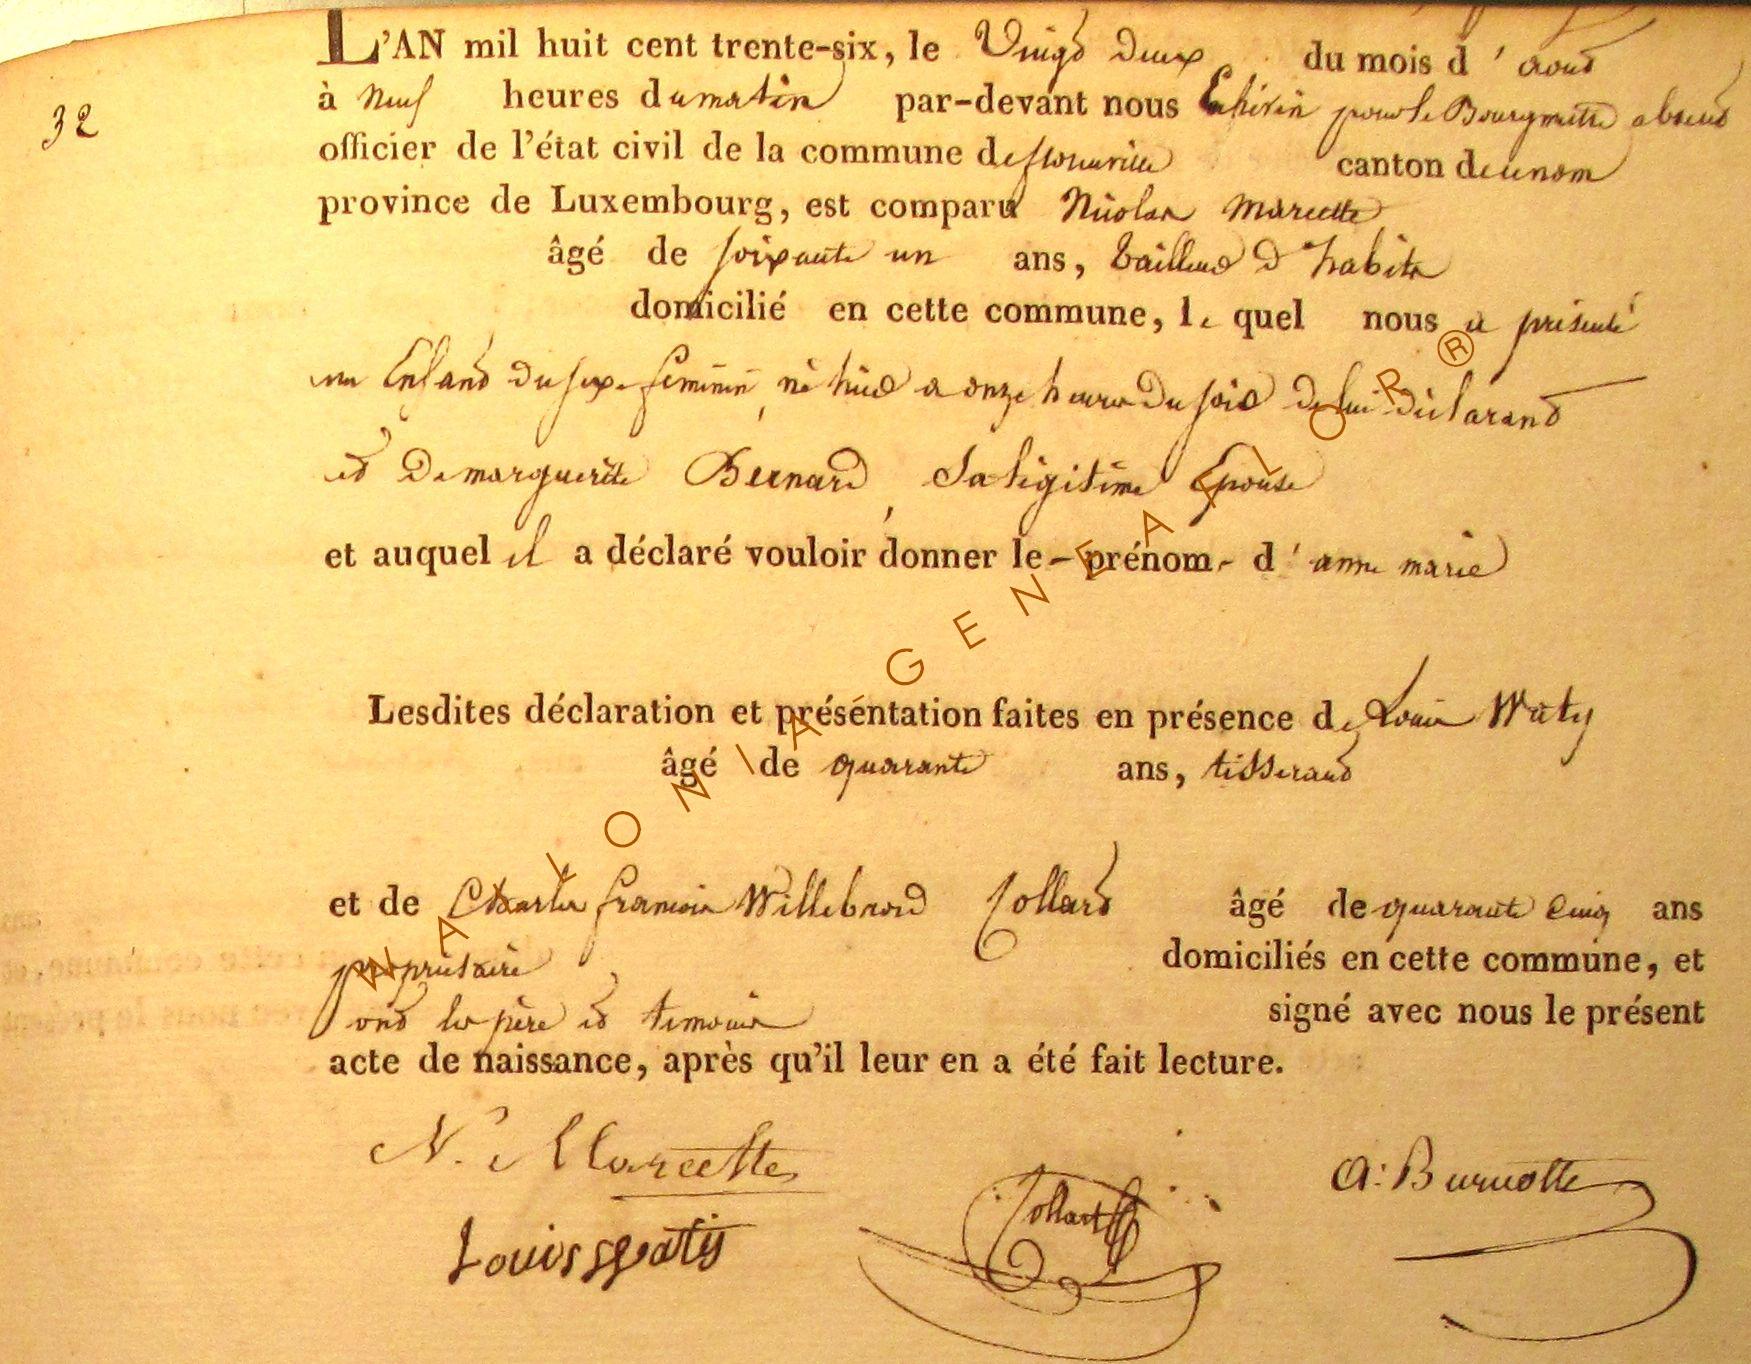 32
L'AN mil huit cent trente-six, le Vingt Deux du mois d'aout
à Neuf heures du matin par-devant nous Echevin pour le Bourgmettre absent
officier de l'état civil de la commune de florenville canton de
province de Luxembourg, est comparu Nicolas Marcette
âgé de soixante un ans, tailleur d'habits
domicilié en cette commune, le quel nous a présenté
un Enfant du sexe feminin né hier a onze heures du soir de lui déclarant
et De marguerite Bernard Sa légitime Epouse
et auquel il a déclaré vouloir donner le - prénom - d'anne marie
Lesdites déclaration et présentation faites en présence de Louis Waty
âgé de quarante ans, tisserand
et de Charles françois Willebrord Collard âgé de quarante cinq ans
propriétaire domiciliés en cette commune, et
ont les père et temoins signé avec nous le présent
acte de naissance, après qu'il leur en a été fait lecture.
N. Marcette
Collard
A: Burnotte
Louis Watiy
WALLONIA GENEALOR ®